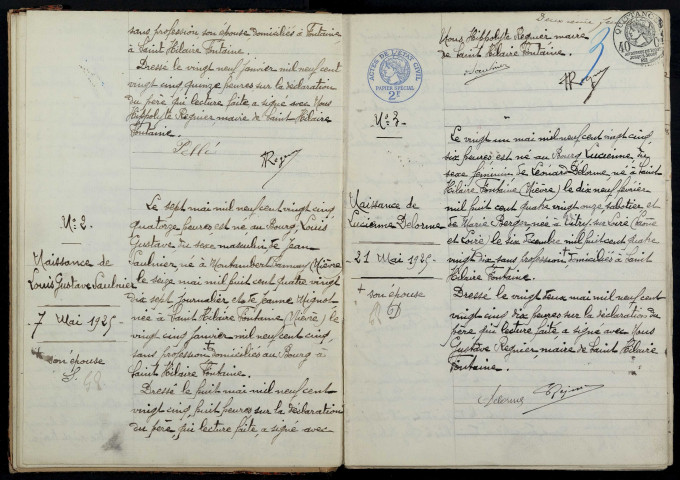 sans profession son épouse domiciliés à Fontaine
à Saint Hilaire Fontaine.
Dressé le vingt neuf janvier mil neuf cent
vingt cinq quinze heures sur la déclaration
du père qui lecture faite a signé avec Nous
Hippolyte Requier maire de Saint Hilaire
Fontaine.
N° 2.
Naissance de
Louis Gustave Saulnier
7 Mai 1925
+ son épouse
Le sept mai mil neuf cent vingt cinq
quatorze heures est né au Bourg, Louis
Gustave du sexe masculin de Jean
Saulnier, né à Montambert Tannay (Nièvre)
le seize mai mil huit cent quatre vingt
dix sept journalier et de Jeanne Mignot
née à Saint Hilaire Fontaine (Nièvre) le
vingt cinq janvier mil neuf cent cinq,
sans profession + domiciliés au Bourg à
Saint Hilaire Fontaine.
Dressé le huit mai mil neuf cent
vingt cinq, huit heures sur la déclaration
du père, qui lecture faite, a signé avec
Deuxième
Nous Hippolyte Requier maire
de Saint Hilaire Fontaine.
Saulnier
3
QUITTANCES
ACTES DE L'ETAT CIVIL
PAPIER SPECIAL
2F
N° 3
Naissance de
Lucienne Delorme
21 Mai 1925
+ son épouse
Le vingt un mai mil neuf cent vingt cinq,
six heures est né au Bourg Lucienne du
sexe féminin de Léonard Delorme, né à Saint
Hilaire Fontaine (Nièvre) le dix neuf février
mil huit cent quatre vingt onze sabotier et
de Marie Berger née à Vitry sur Loire (Saône
et Loire) le six Décembre mil huit cent quatre
vingt dix sans profession + domiciliés à Saint
Hilaire Fontaine.
Dressé le vingt deux mai mil neuf cent
vingt cinq dix heures sur la déclaration du
père qui lecture faite a signé avec Nous
Gustave Requier maire de Saint Hilaire
Fontaine.
Delorme